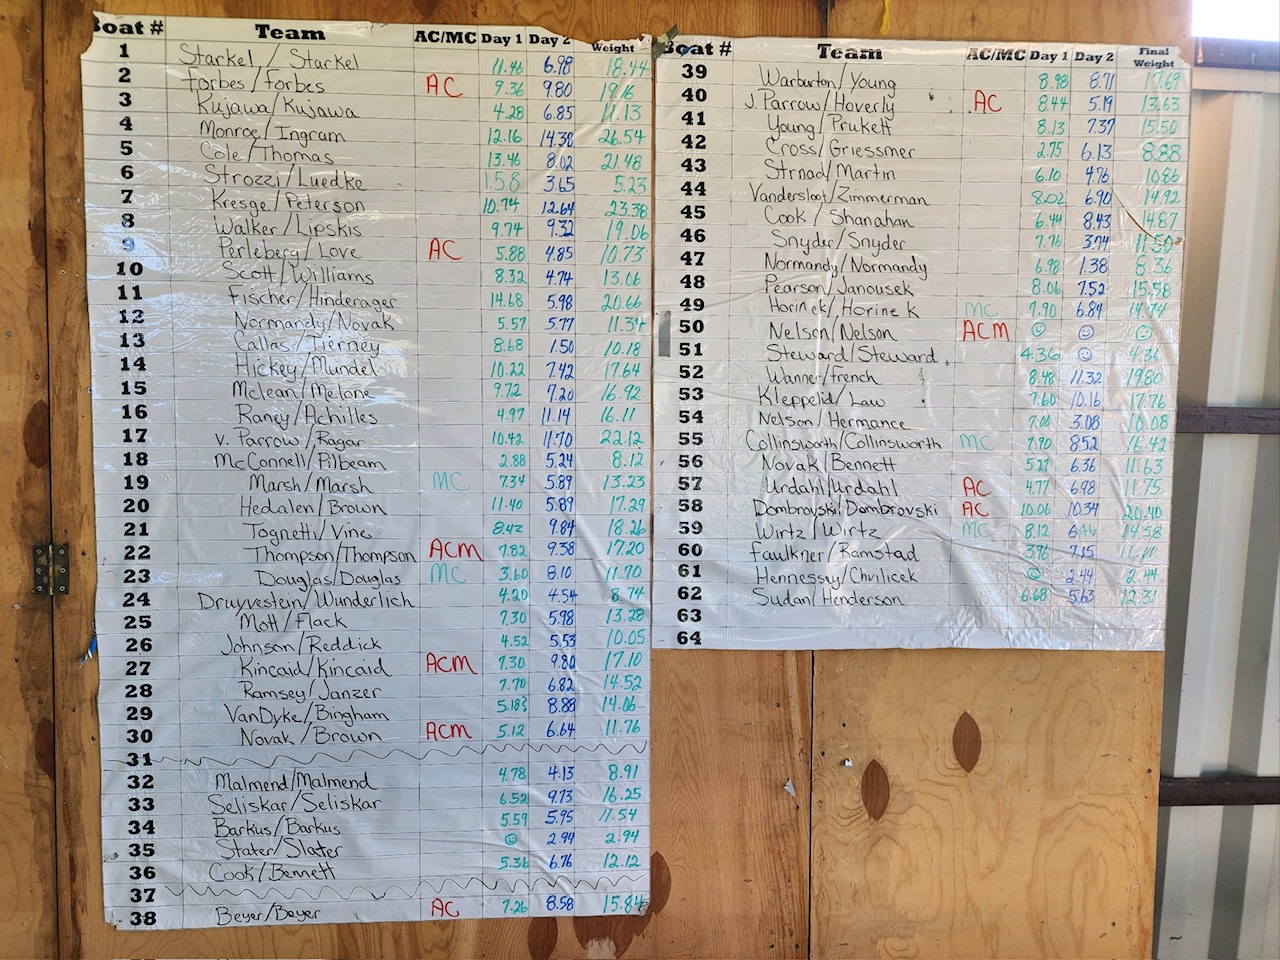 Boat # Team AC/MC Day 1 Day 2 Weight
1 Starkel / Starkel 11.46 6.98 18.44
2 Forbes / Forbes AC 9.36 9.80 19.16
3 Kujawa/Kujawa 4.28 6.85 11.13
4 Monroe/Ingram 12.16 14.38 26.54
5 Cole/Thomas 13.46 8.02 21.48
6 Strozzi/Luedke 1.58 3.65 5.23
7 Kresge/Peterson 10.74 12.64 23.38
8 Walker/Lipskis 9.74 9.32 19.06
9 Perleberg/Love AC 5.88 4.85 10.73
10 Scott/Williams 8.32 4.74 13.06
11 Fischer/Hinderager 14.68 5.98 20.66
12 Normandy/Novak 5.57 5.77 11.34
13 Callas/Tierney 8.68 1.50 10.18
14 Hickey/Mundel 10.22 7.42 17.64
15 Mclean/Melone 9.72 7.20 16.92
16 Raney/Achilles 4.97 11.14 16.11
17 V. Parrow/Ragar 10.42 11.70 22.12
18 McConnell/Pilbeam 2.88 5.24 8.12
19 Marsh/Marsh MC 7.34 5.89 13.23
20 Hedalen/Brown 11.40 5.89 17.29
21 Tognetti/Vine 8.42 9.84 18.26
22 Thompson/Thompson ACM 7.82 9.38 17.20
23 Douglas/Douglas MC 3.60 8.10 11.70
24 Druyvestein/Wunderlich 4.20 4.54 8.74
25 Mott/Flack 7.30 5.98 13.28
26 Johnson/Reddick 4.52 5.53 10.05
27 Kincaid/Kincaid ACM 7.30 9.80 17.10
28 Ramsey/Janzer 7.70 6.82 14.52
29 VanDyke/Bingham 5.18 8.88 14.06
30 Novak/Brown ACM 5.12 6.64 11.76
31
32 Malmend/Malmend 4.78 4.13 8.91
33 Seliskar/Seliskar 6.52 9.73 16.25
34 Barkus/Barkus 5.59 5.95 11.54
35 Slater/Slater ☺ 2.94 2.94
36 Cook/Bennett 5.36 6.76 12.12
37
38 Beyer/Beyer AC 7.26 8.58 15.84
Boat # Team AC/MC Day 1 Day 2 Final Weight
39 Warburton/Young 8.98 8.71 17.69
40 J. Parrow/Hoverly AC 8.44 5.19 13.63
41 Young/Prukett 8.13 7.37 15.50
42 Cross/Griessmer 2.75 6.13 8.88
43 Strnad/Martin 6.10 4.76 10.86
44 Vandersloot/Zimmerman 8.02 6.90 14.92
45 Cook/Shanahan 6.44 8.43 14.87
46 Snyder/Snyder 7.76 3.74 11.50
47 Normandy/Normandy 6.98 1.38 8.36
48 Pearson/Janousek 8.06 7.52 15.58
49 Horinek/Horinek MC 7.90 6.84 14.74
50 Nelson/Nelson ACM ☺ ☺ ☺
51 Steward/Steward 4.36 ☺ 4.36
52 Wanner/French 8.48 11.32 19.80
53 Kleppelid/Law 7.60 10.16 17.76
54 Nelson/Hermance 7.00 3.08 10.08
55 Collinsworth/Collinsworth MC 7.90 8.52 16.42
56 Novak/Bennett 5.27 6.36 11.63
57 Urdahl/Urdahl AC 4.77 6.98 11.75
58 Dombrovski/Dombrovski AC 10.06 10.34 20.40
59 Wirtz/Wirtz MC 8.12 6.46 14.58
60 Faulkner/Ramstad 3.96 7.15 11.11
61 Hennessy/Chvilicek ☺ 2.44 2.44
62 Sudan/Henderson 6.68 5.63 12.31
63
64